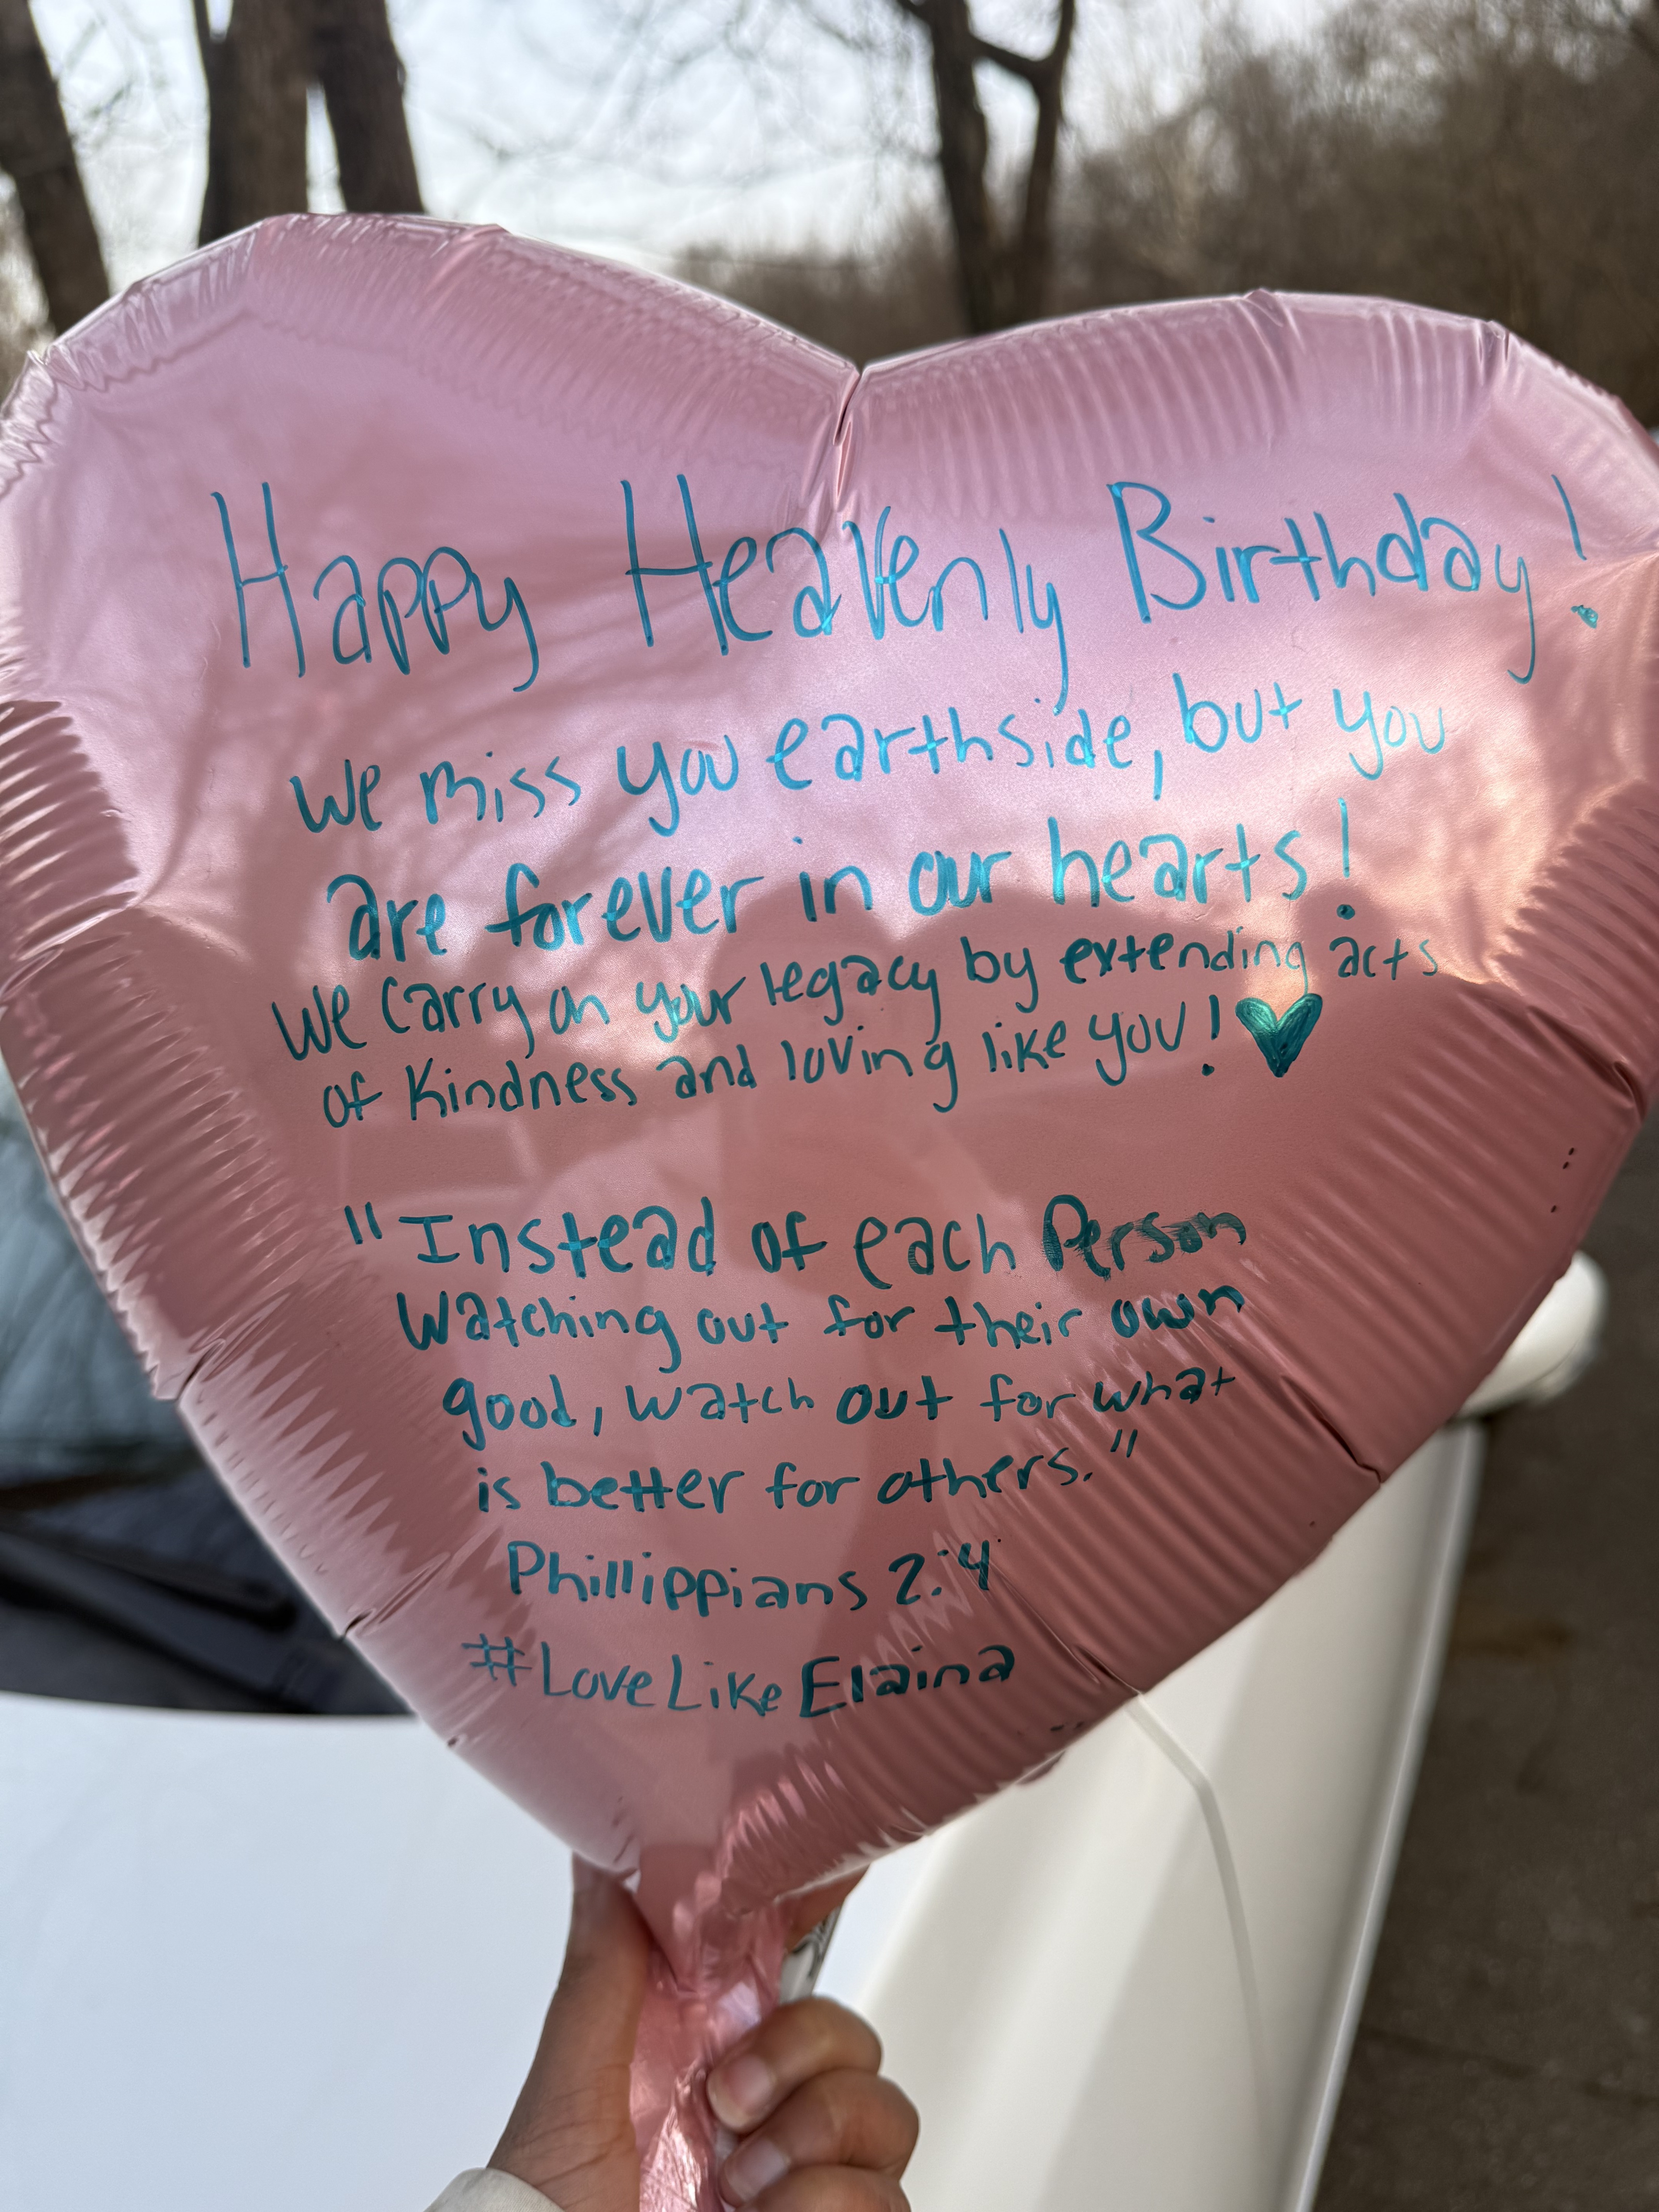 Happy Heavenly Birthday!
We miss you earthside, but you
are forever in our hearts!
We carry on your legacy by extending acts
of kindness and loving like you! ♥
"Instead of each Person
watching out for their own
good, watch out for what
is better for others."
Phillippians 2:4
#LoveLikeElaina